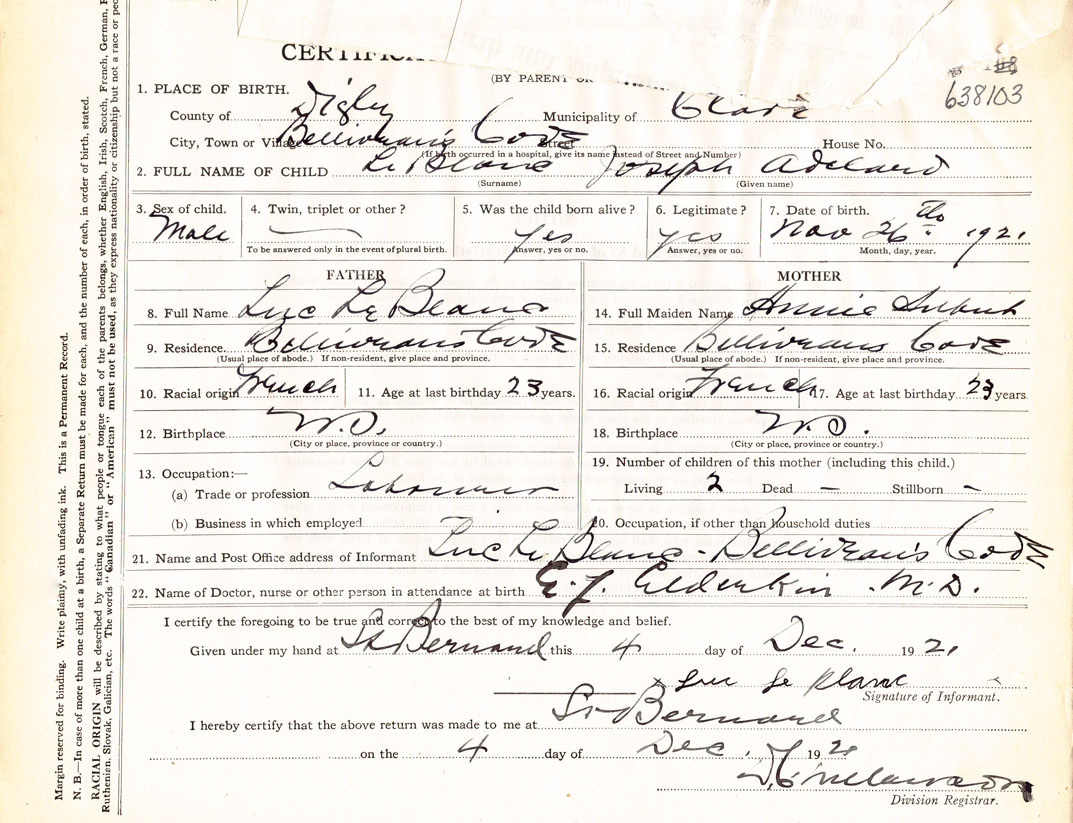 CERTIFICA
(BY PARENT OR
638103
1. PLACE OF BIRTH.
County of Digby Municipality of Clare
City, Town or Village Belliveau's Cove Street House No.
(If birth occurred in a hospital, give its name instead of Street and Number)
2. FULL NAME OF CHILD Le Blanc Joseph Adelard
(Surname) (Given name)
3. Sex of child. 4. Twin, triplet or other? 5. Was the child born alive? 6. Legitimate? 7. Date of birth.
Male yes yes Nov 26th 1921
To be answered only in the event of plural birth. Answer, yes or no. Answer, yes or no. Month, day, year.
FATHER MOTHER
8. Full Name Luc Le Blanc 14. Full Maiden Name Annie
9. Residence. Belliveau's Cove 15. Residence Belliveaus Cove
(Usual place of abode.) If non-resident, give place and province. (Usual place of abode.) If non-resident, give place and province.
10. Racial origin French 11. Age at last birthday 23 years. 16. Racial origin French 17. Age at last birthday 23 years
12. Birthplace 18. Birthplace
(City or place, province or country.) (City or place, province or country.)
13. Occupation:— 19. Number of children of this mother (including this child.)
(a) Trade or profession Labourer Living 2 Dead — Stillborn -
(b) Business in which employed 20. Occupation, if other than household duties
21. Name and Post Office address of Informant Luc Le Blanc - Belliveau's Cove
22. Name of Doctor, nurse or other person in attendance at birth E. J. Elderkin M.D.
I certify the foregoing to be true and correct to the best of my knowledge and belief.
Given under my hand at St Bernard this 4 day of Dec. 1921
x Luc Le Blanc
Signature of Informant.
I hereby certify that the above return was made to me at St Bernard
on the 4 day of Dec. 1921
Division Registrar.
Margin reserved for binding. Write plainly, with unfading ink. This is a Permanent Record.
N. B.—In case of more than one child at a birth, a Separate Return must be made for each, and the number of each, in order of birth, stated.
RACIAL ORIGIN will be described by stating to what people or tongue each of the parents belongs, whether English, Irish, Scotch, French, German,
Ruthenian, Slovak, Galician, etc. The words "Canadian" or "American" must not be used, as they express nationality or citizenship but not a race or peo